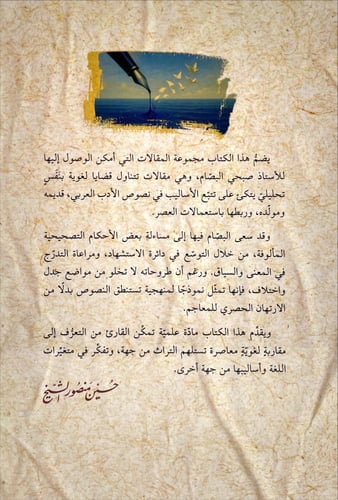 يضمُّ هذا الكتاب مجموعة المقالات التي أمكن الوصول إليها
للأستاذ صبحي البصّام، وهي مقالات تتناول قضايا لغوية بنَفَسٍ
تحليليّ يتكئ على تتبّع الأساليب في نصوص الأدب العربي، قديمه
ومولّده، وربطها باستعمالات العصر.
وقد سعى البصّام فيها إلى مساءلة بعض الأحكام التصحيحية
المألوفة، من خلال التوسّع في دائرة الاستشهاد، ومراعاة التدرّج
في المعنى والسياق. ورغم أن طروحاته لا تخلو من مواضع جدل
واختلاف، فإنها تمثّل نموذجًا لمنهجية تستنطق النصوص بدلًا من
الارتهان الحصري للمعاجم.
ويقدِّم هذا الكتاب مادّة علميّة تمكّن القارئ من التعرُّف إلى
مقاربةٍ لغويّةٍ معاصرة تستلهم التراث من جهة، وتفكّر في متغيّرات
اللغة وأساليبها من جهة أخرى.
حسين منصور الشيخ